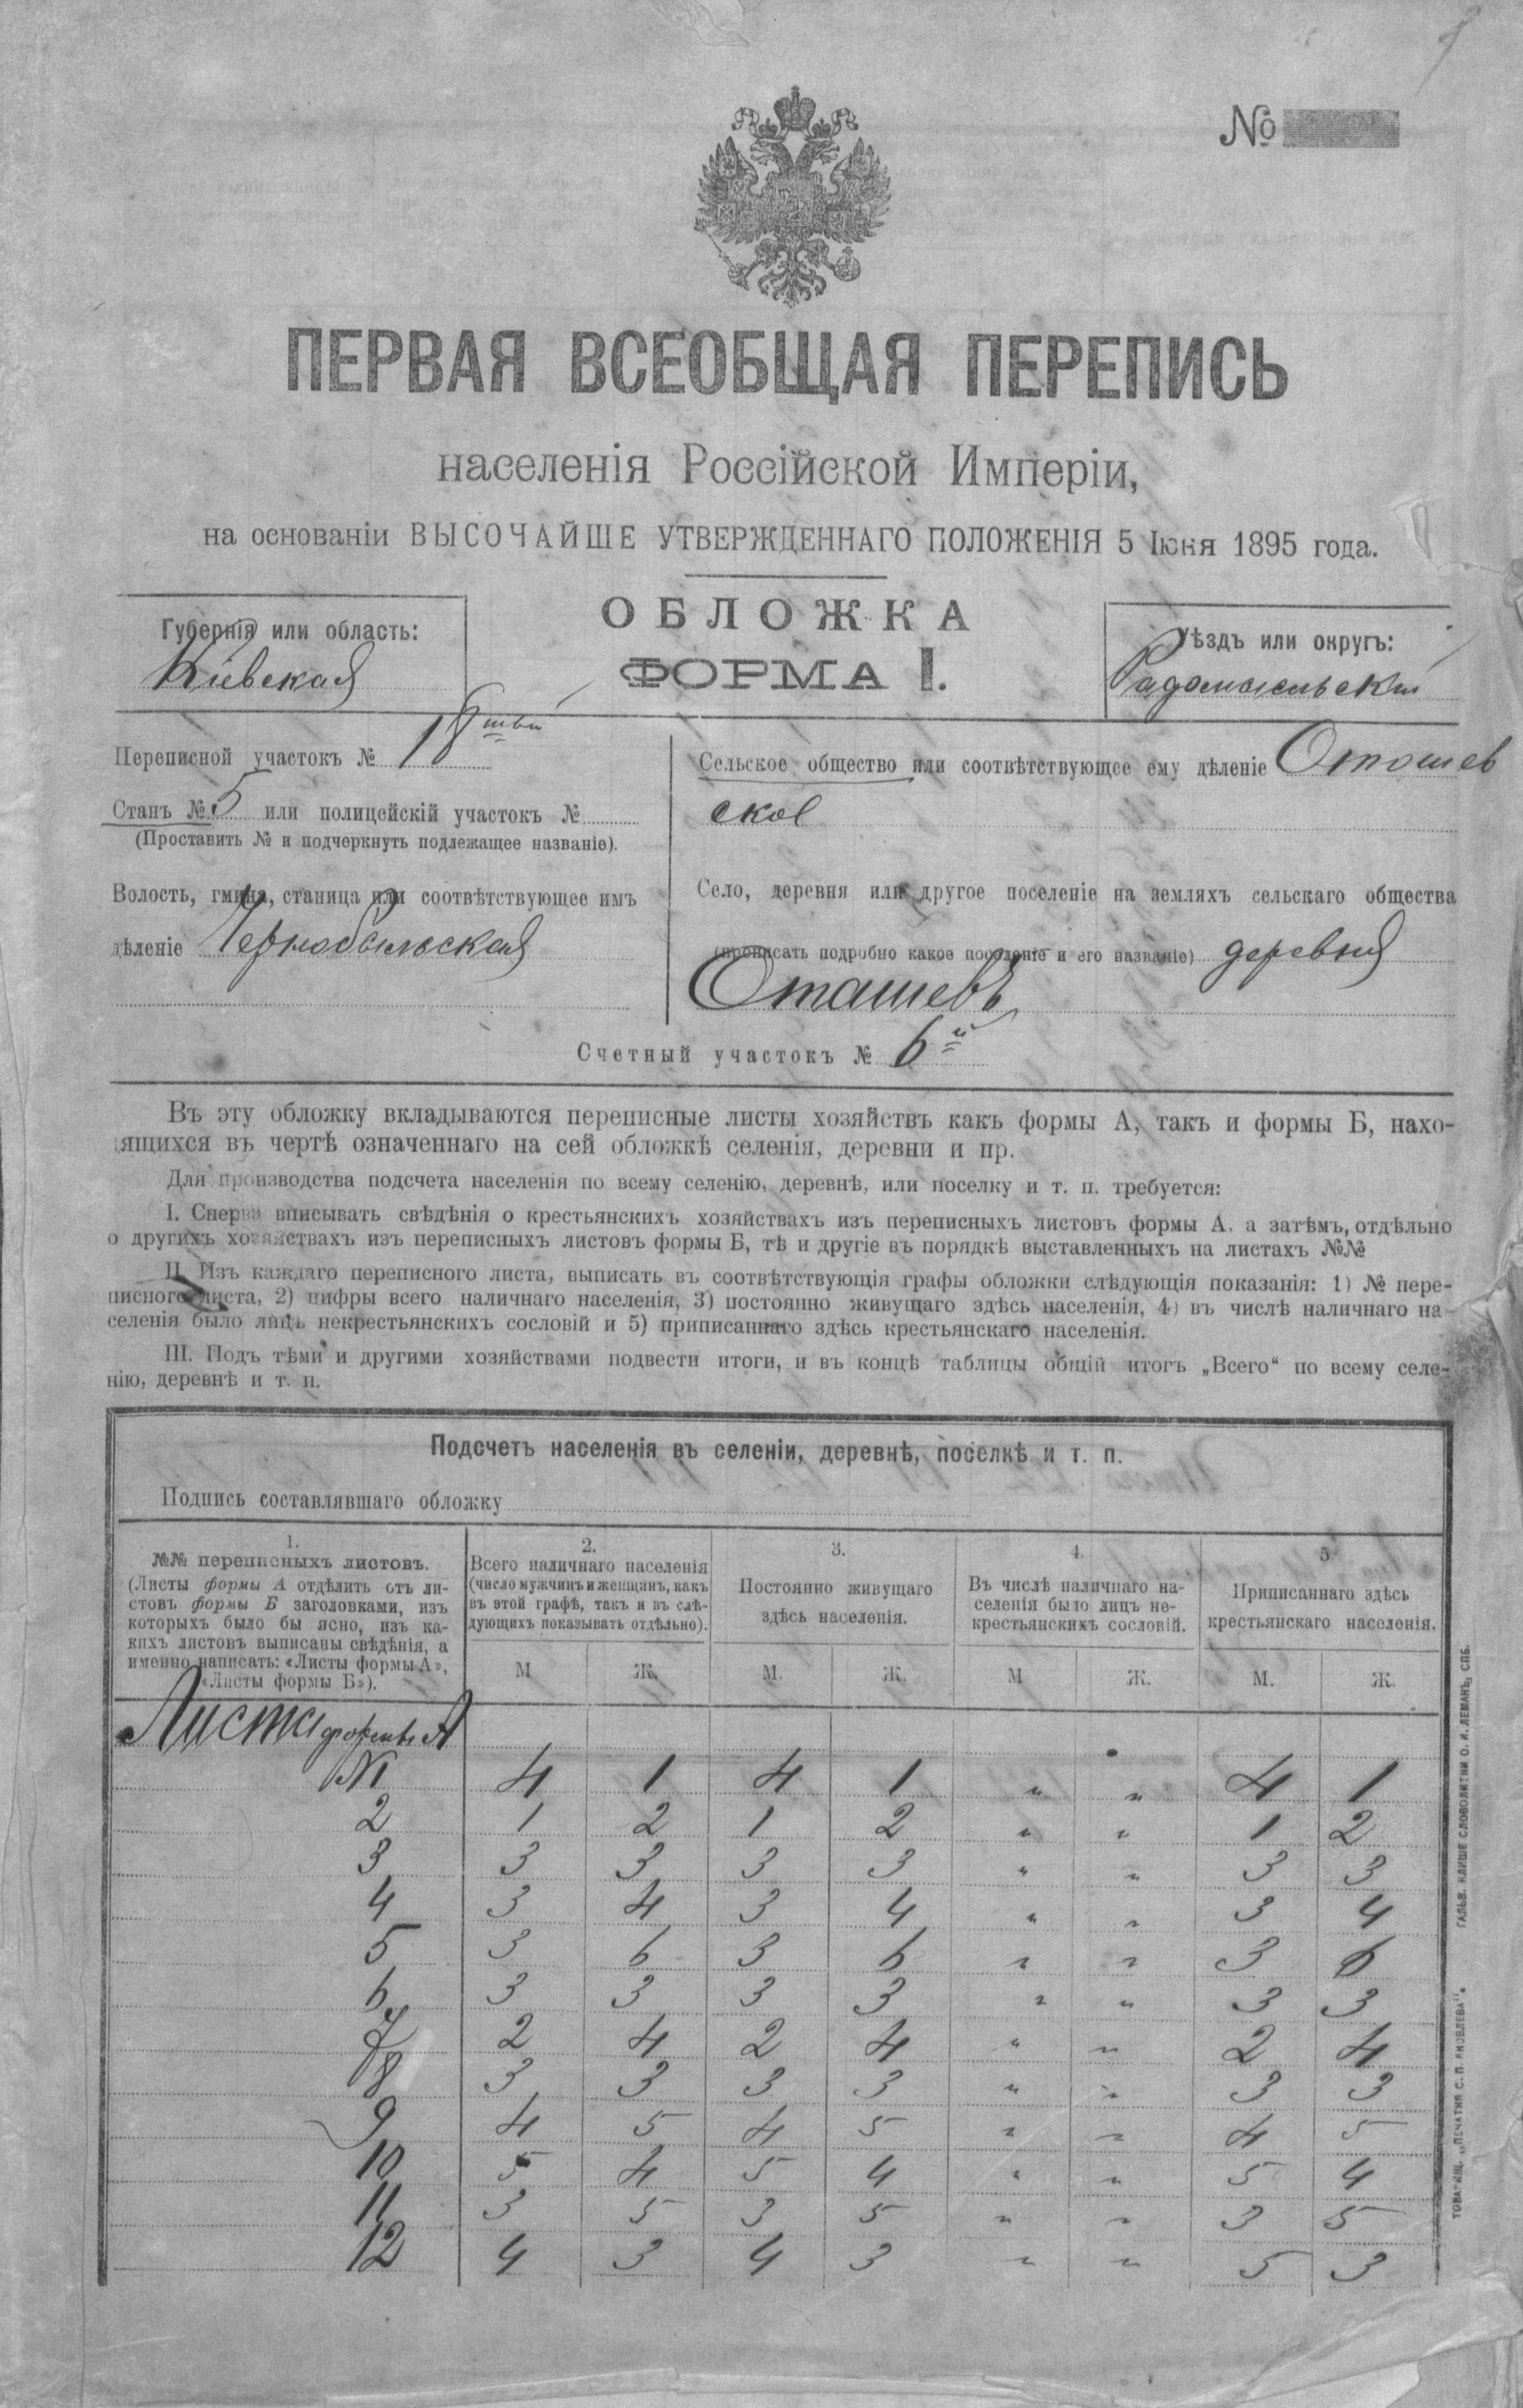 №
ПЕРВАЯ ВСЕОБЩАЯ ПЕРЕПИСЬ
населенія Россійской Имперіи,
на основаніи ВЫСОЧАЙШЕ УТВЕРЖДЕННАГО ПОЛОЖЕНІЯ 5 Іюня 1895 года.
ОБЛОЖКА
ФОРМА I.
Губернія или область:
Кіевская
Уѣздъ или округъ:
Радомысльскій
Переписной участокъ № 18
Станъ № 5 или полицейскій участокъ №
(Проставить № и подчеркнуть подлежащее названіе).
Волость, гмина, станица или соотвѣтствующее имъ
дѣленіе Чернобыльская
Сельское общество или соотвѣтствующее ему дѣленіе Оташев
ское
Село, деревня или другое поселеніе на земляхъ сельскаго общества
(прописать подробно какое поселеніе и его названіе) деревня
Оташевъ
Счетный участокъ № 6й
Въ эту обложку вкладываются переписные листы хозяйствъ какъ формы А, такъ и формы Б, нахо-
дящихся въ чертѣ означеннаго на сей обложкѣ селенія, деревни и пр.
Для производства подсчета населенія по всему селенію, деревнѣ, или поселку и т. п. требуется:
I. Сперва вписывать свѣдѣнія о крестьянскихъ хозяйствахъ изъ переписныхъ листовъ формы А, а затѣмъ, отдѣльно
о другихъ хозяйствахъ изъ переписныхъ листовъ формы Б, тѣ и другіе въ порядкѣ выставленныхъ на листахъ №№
II. Изъ каждаго переписного листа, выписать въ соотвѣтствующія графы обложки слѣдующія показанія: 1) № пере-
писного листа, 2) цифры всего наличнаго населенія, 3) постоянно живущаго здѣсь населенія, 4) въ числѣ наличнаго на-
селенія было лицъ некрестьянскихъ сословій и 5) приписаннаго здѣсь крестьянскаго населенія.
III. Подъ тѣми и другими хозяйствами подвести итоги, и въ концѣ таблицы общій итогъ „Всего“ по всему селе-
нію, деревнѣ и т. п.
Подсчетъ населенія въ селеніи, деревнѣ, поселкѣ и т. п.
Подпись составлявшаго обложку
1.
№№ переписныхъ листовъ.
(Листы формы А отдѣлить отъ ли-
стовъ формы Б заголовками, изъ
которыхъ было бы ясно, изъ ка-
кихъ листовъ выписаны свѣдѣнія, а
именно написать: «Листы формы А»,
«Листы формы Б»).
2.
Всего наличнаго населенія
(число мужчинъ и женщинъ, какъ
въ этой графѣ, такъ и въ слѣ-
дующихъ показывать отдѣльно).
3.
Постоянно живущаго
здѣсь населенія.
4.
Въ числѣ наличнаго на-
селенія было лицъ не-
крестьянскихъ сословій.
5
Приписаннаго здѣсь
крестьянскаго населенія.
М Ж. М. Ж. М Ж. М. Ж.
Листы формы А
№1 4 1 4 1 " " 4 1
2 1 2 1 2 " " 1 2
3 3 3 3 3 " " 3 3
4 3 4 3 4 " " 3 4
5 3 6 3 6 " " 3 6
6 3 3 3 3 " " 3 3
7 2 4 2 4 " " 2 4
8 3 3 3 3 " " 3 3
9 4 5 4 5 " " 4 5
10 5 4 5 4 " " 5 4
11 3 5 3 5 " " 3 5
12 4 3 4 3 " " 5 3
ГАЛЬВ. КЛИШЕ СЛОВОЛИТНИ О. И. ЛЕМАНЪ, СПБ.
ТОВАРИЩ. „ПЕЧАТНЯ С. П. ЯКОВЛЕВА“.